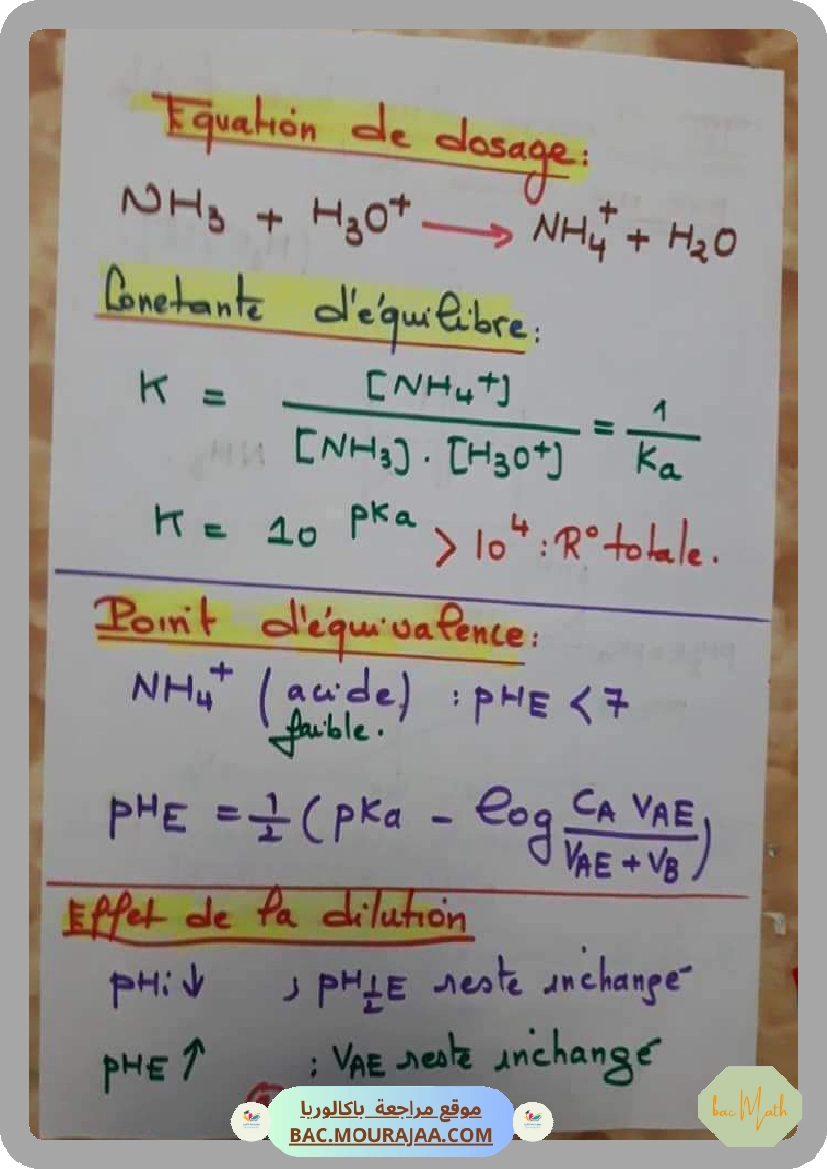 Equation de dosage :
NH₃ + H₃O⁺ ⟶ NH₄⁺ + H₂O
Constante d'équilibre :
K = [NH₄⁺] / [NH₃] . [H₃O⁺] = 1 / Ka
K = 10^pKa > 10⁴ : R° totale.
Point d'équivalence :
NH₄⁺ (acide) : pHE < 7
faible.
pHE = 1/2 (pKa - log CA VAE / VAE + VB)
Effet de la dilution
pHi ↓ ; pH1/2E reste inchangé
pHE ↑ ; VAE reste inchangé
موقع مراجعة باكالوريا
BAC.MOURAJAA.COM
bac Math